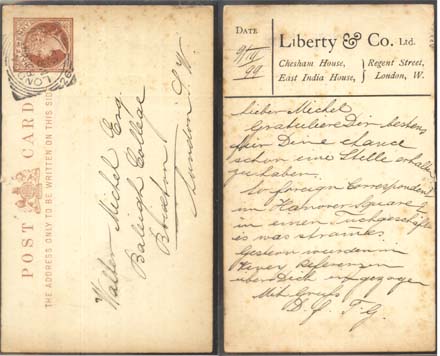 POST CARD
THE ADDRESS ONLY TO BE WRITTEN ON THIS SIDE
Walter Michel Esq.
Raleigh College
Brixton
London S.W.
DATE
9/IV
99
Liberty & Co. Ltd.
Chesham House,
East India House,
Regent Street,
London, W.
Lieber Michel
Gratuliere Dir bestens
für Deine chance
schon eine Stelle erhalten
zu haben.
So foreign Correspondent
in Hanover Square
in einem Tuchgeschäft
es was
Gestern wurden in
Referenzen
über Dich
Mit Gruss
D. f. T. G.